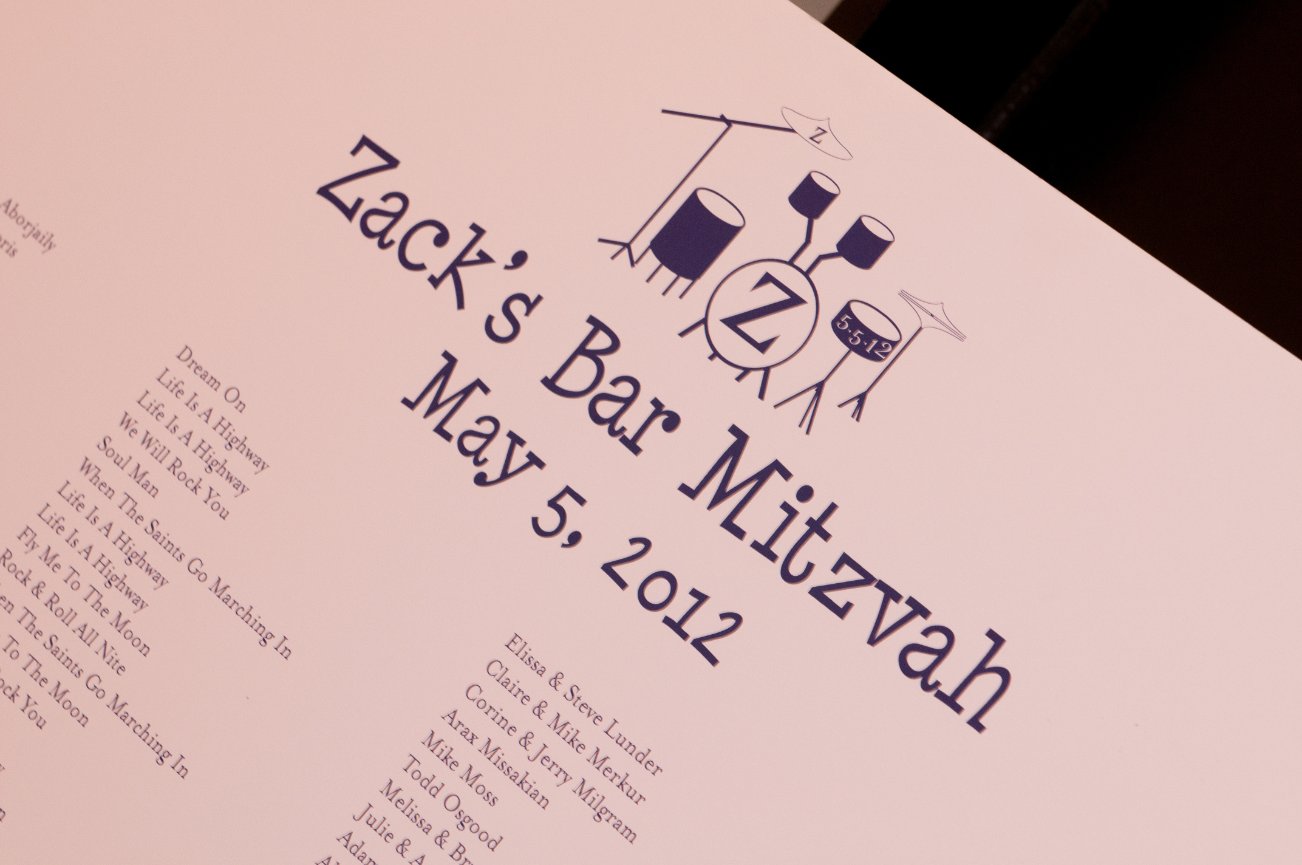 Z
Z
5·5·12
Zack's Bar Mitzvah
May 5, 2012
Aborjaily
Dream On
Life Is A Highway
Life Is A Highway
We Will Rock You
Soul Man
When The Saints Go Marching In
Life Is A Highway
Life Is A Highway
Fly Me To The Moon
Rock & Roll All Nite
The Saints Go Marching In
To The Moon
You
Elissa & Steve Lunder
Claire & Mike Merkur
Corine & Jerry Milgram
Arax Missakian
Mike Moss
Todd Osgood
Melissa &
Julie &